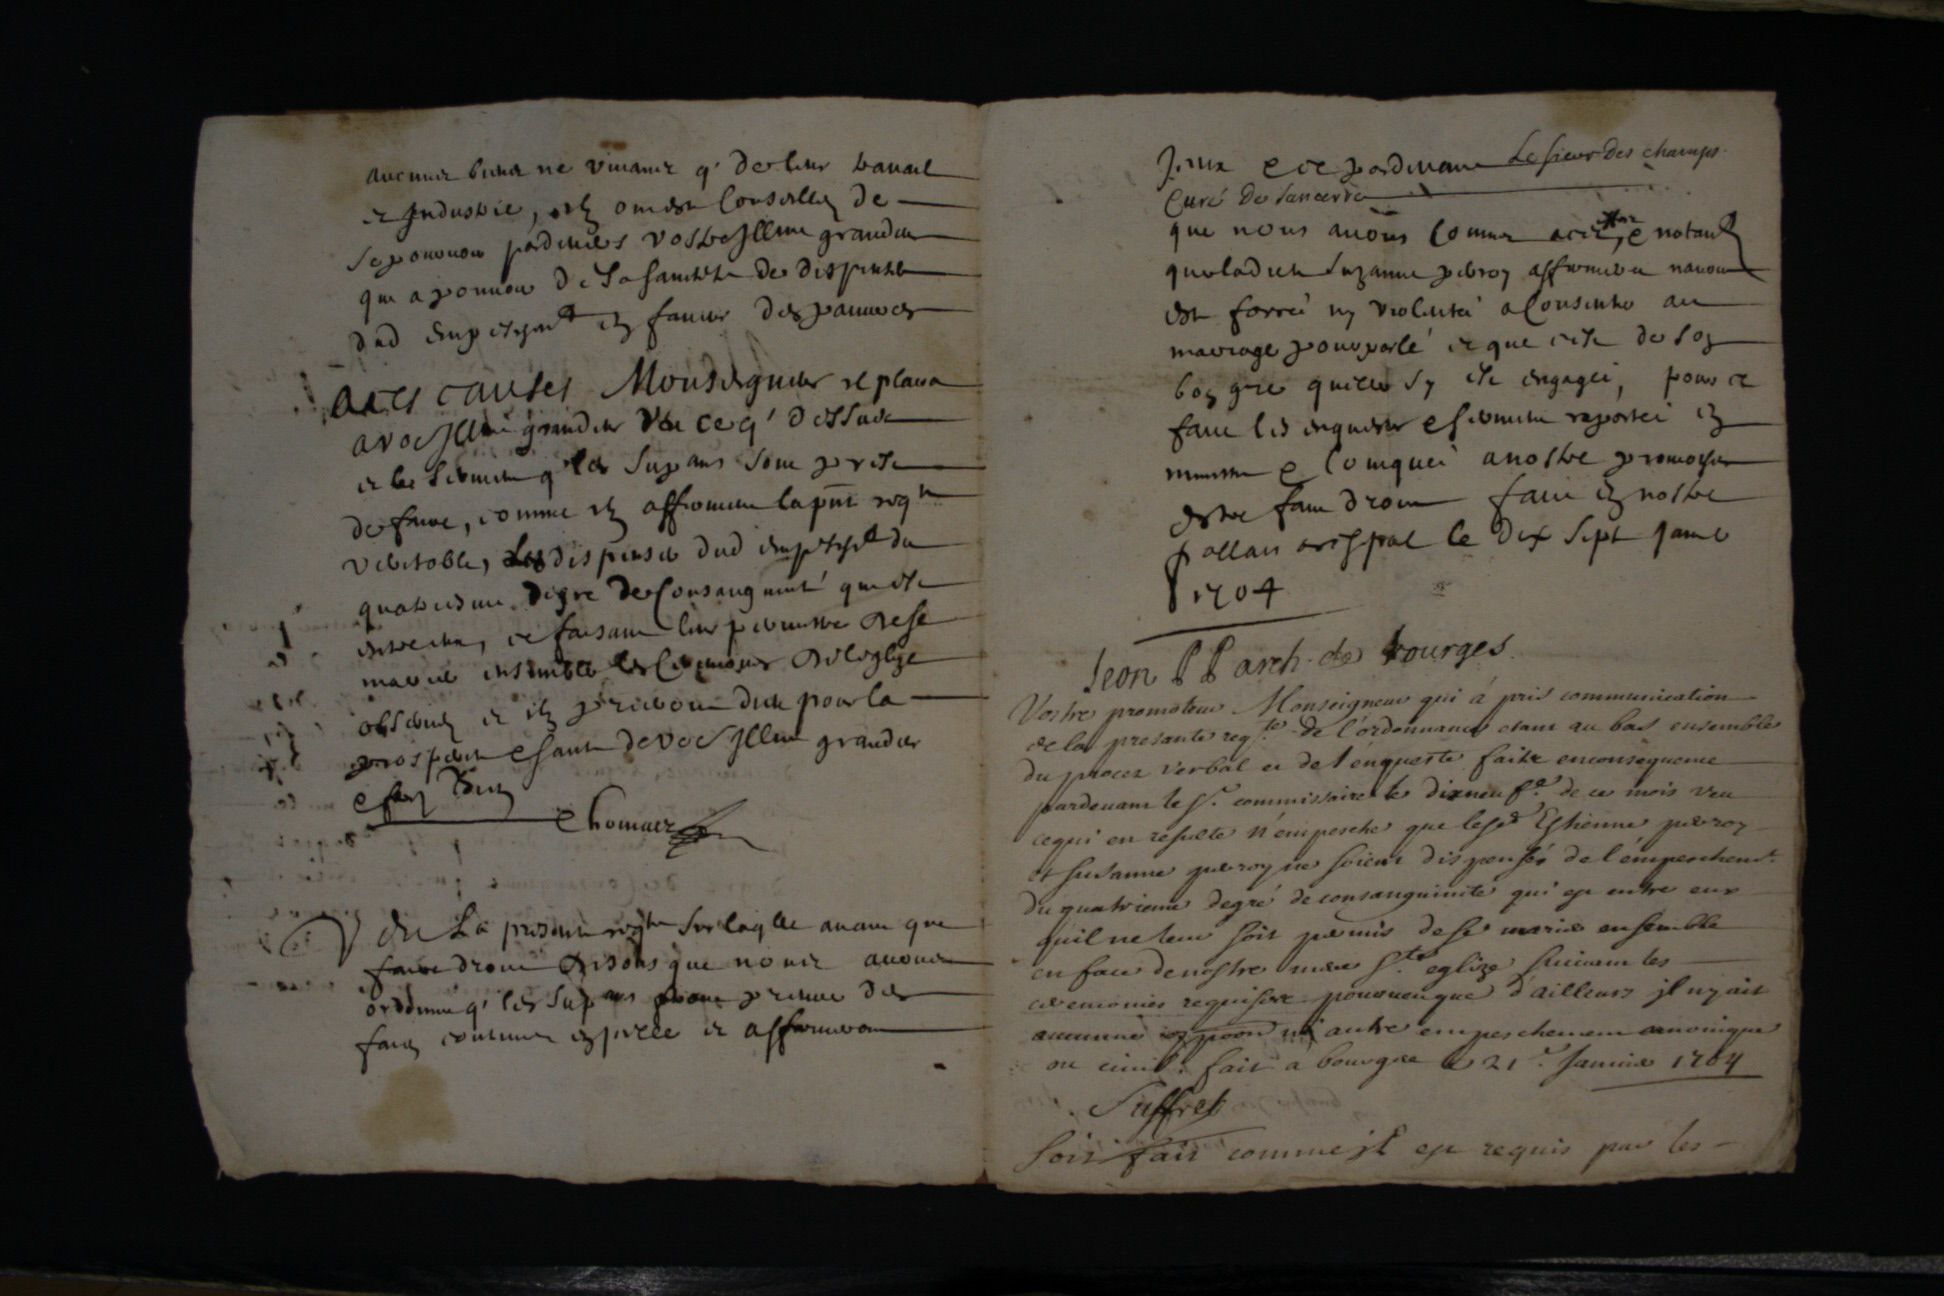 aucuns biens ne vivants q' de leur travail
et Industrie, ilz ont esté Conseillez de
se pourvoir pardevers vostre Illme grandeur
qui a pouvoir de Sa Sainteté de dispenser
dud empeschemt en faveur des pauvres
A ces causes Monseigneur il plaira
a vre Illme grandeur Veu ce q' dessus
et le serment q' les Supans sont prests
de faire, comme ilz afferment la pnte reqte
veritable, Les dispenser dud empeschemt du
quatriesme degré de Consanguinité qui est
entre eux, ce faisant leur permettre de se
marier ensemble les Ceremonies de l'eglize
observées et ilz prieront dieu pour la
prosperité e santé de vre Illme grandeur
Thomas
Veu La presente reqte sur laqlle avant que
faire droit disons que nous avons
ordonné q' les Supans
faits contenus en icelle et affirmeront
Iceux e ce pardevant Le sieur Des champs
Curé De Sancerre
que nous avons Commis a cet effet, e notamt
que ladite Suzanne perroy affirmera n'avoir
esté forcée ny violentée a Consentir au
mariage pourparlé et que c'est de son
bon gré quelle s'y est engagée, pour ce
fait les enquestes e serment raportés en
minutte e Comuqué a nostre promoteur
estre fait droit fait en nostre
pallais archipal le dix sept Janvr
1704
Leon P P arch. de bourges
Vostre promoteur Monseigneur qui à pris communication
de la presante reqte de l'ordonnance etant au bas ensemble
du procez verbal et de l'enqueste faitte en consequence
pardevant le Sr. commissaire le dixneufe. de ce mois veu
ce qui en resulte n'empesche que lesd Estienne perroy
et Susanne perroy ne soient dispensés de l'empeschemt.
du quatrieme degré de consanguinité qui est entre eux
quil ne leur soit permis de se marier ensemble
en face de nostre mere Ste eglize suivant les
ceremonies requises pourveu que d'ailleurs il n'y ait
aucune oppoon ni autre empeschement canonique
ou civil. fait a bourges le 21e. Janvier 1704
Suffret
Soit fait comme il est requis par les